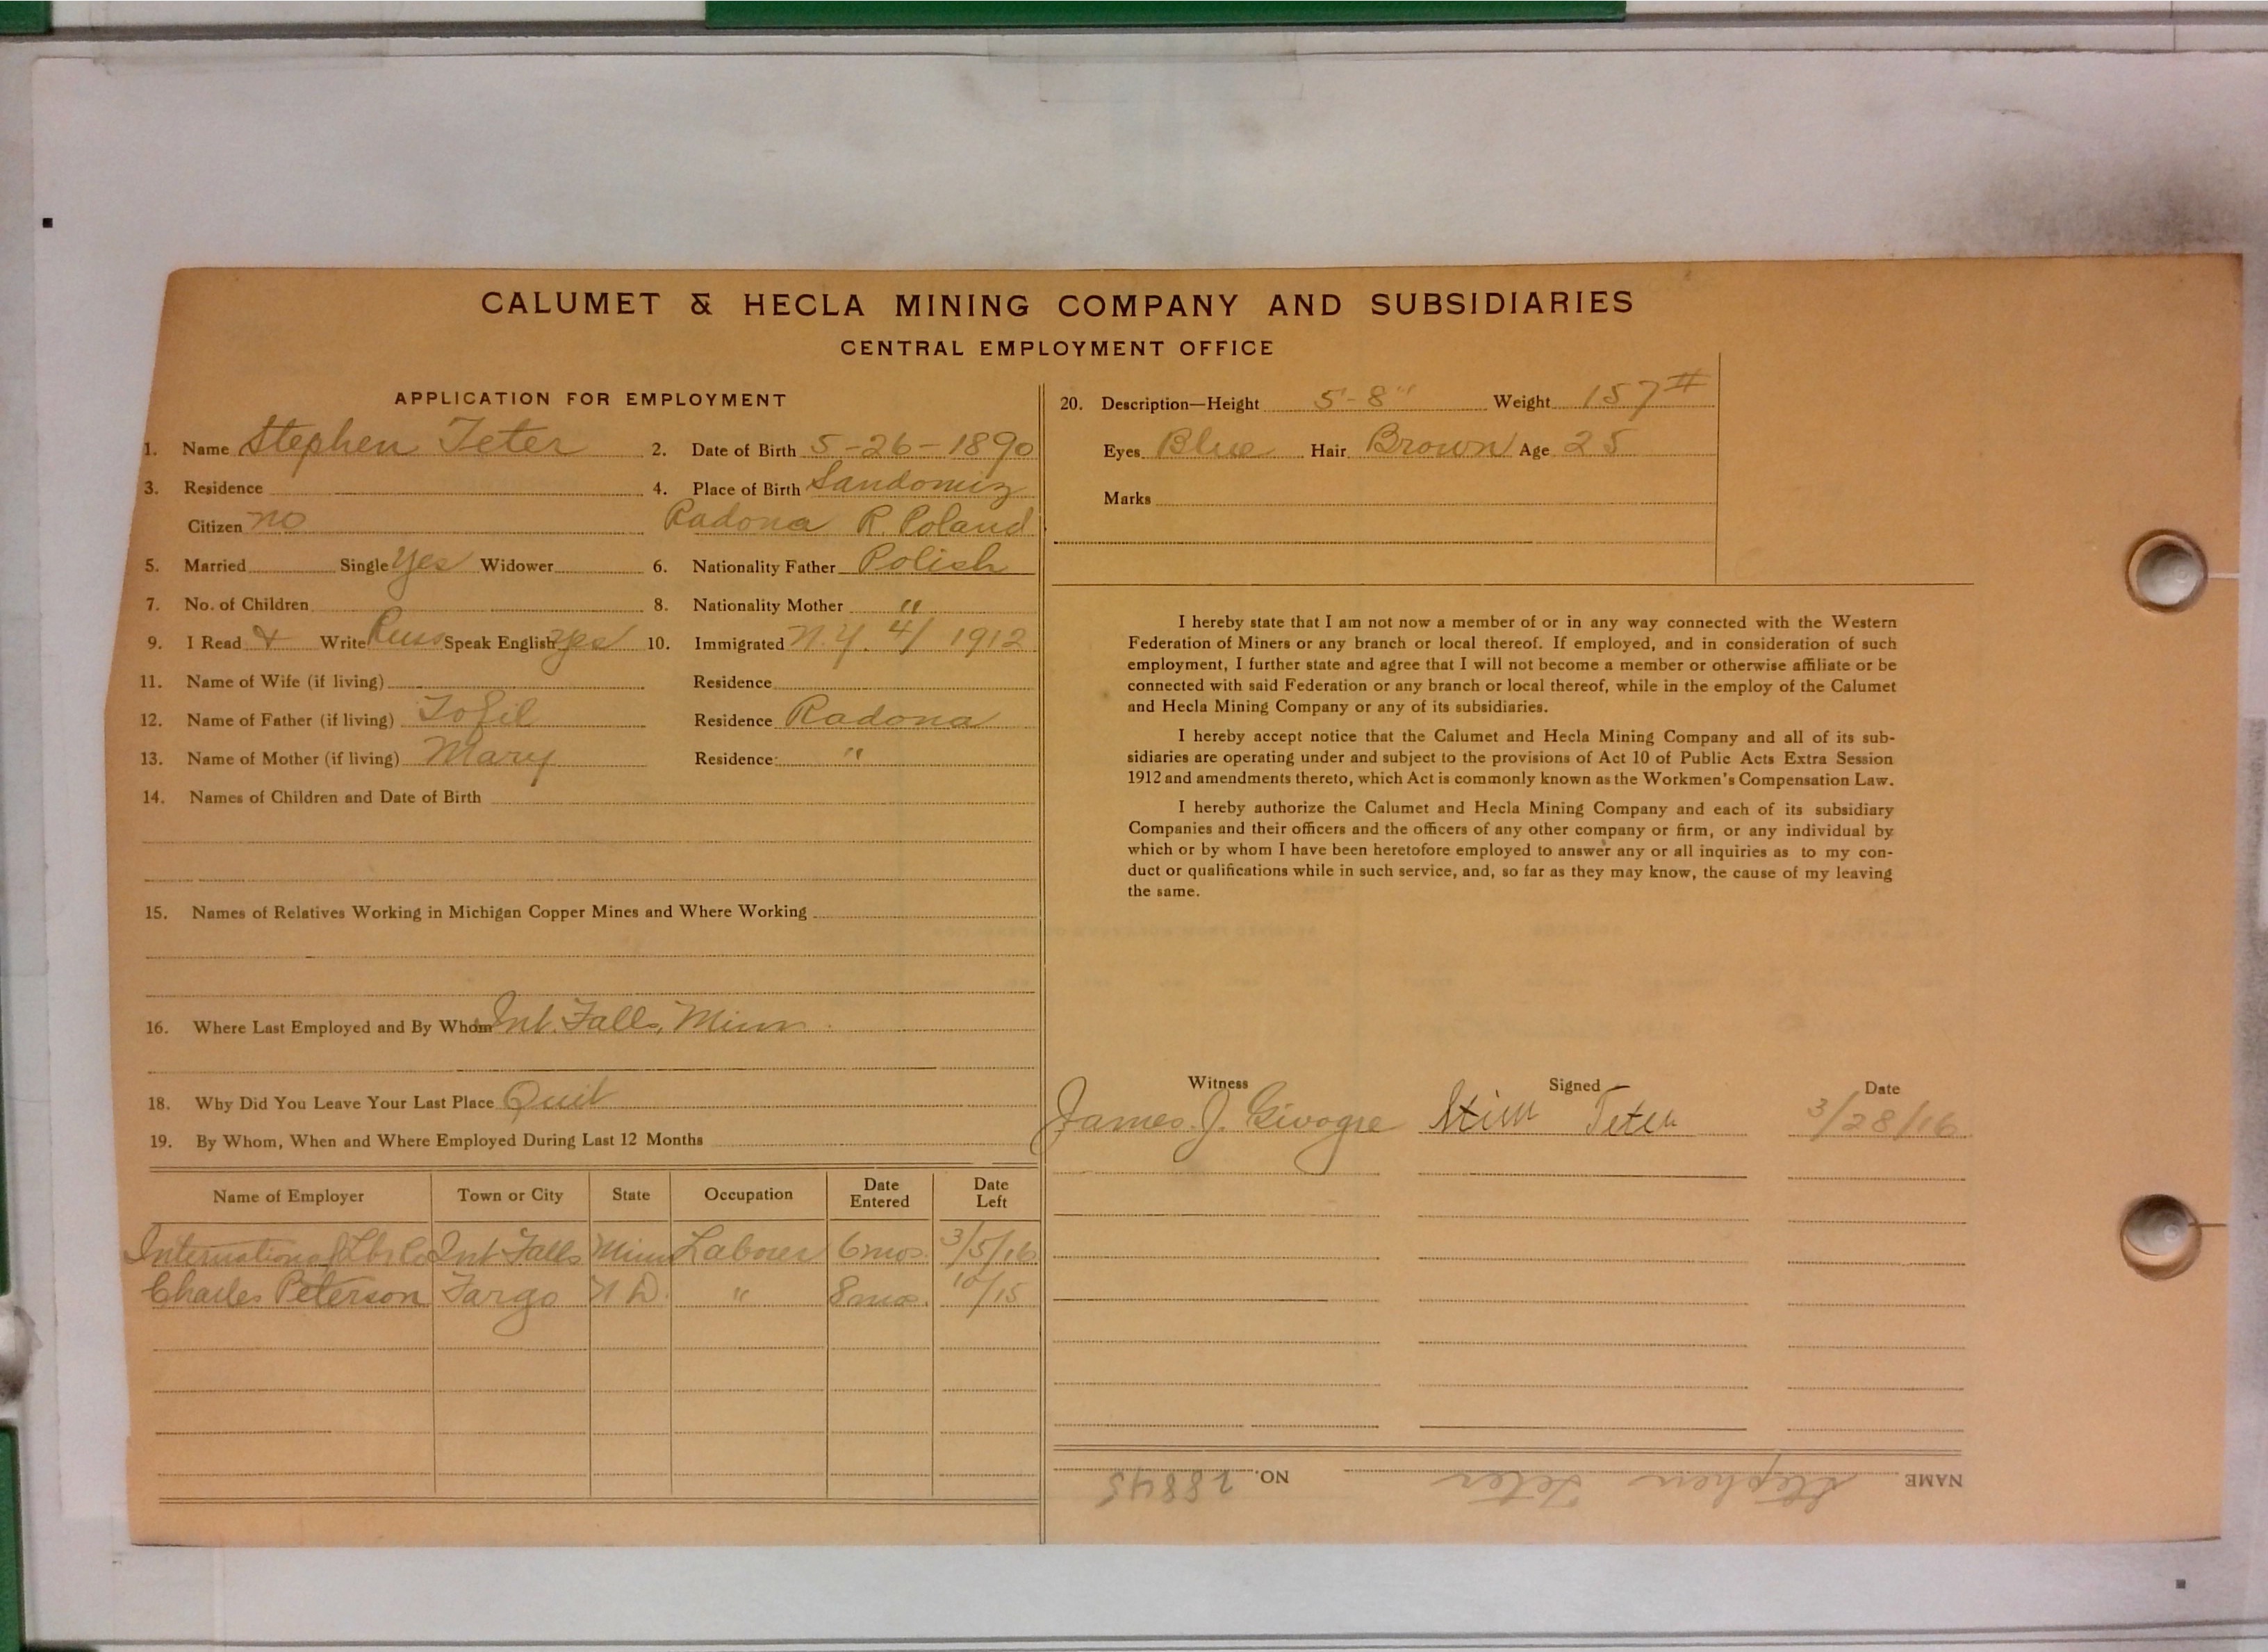 CALUMET & HECLA MINING COMPANY AND SUBSIDIARIES
CENTRAL EMPLOYMENT OFFICE
APPLICATION FOR EMPLOYMENT
1. Name Stephen Teter 2. Date of Birth 5-26-1890
3. Residence 4. Place of Birth Sandomiz
Citizen no Radona R. Poland
5. Married Single Yes Widower 6. Nationality Father Polish
7. No. of Children 8. Nationality Mother "
9. I Read & Write Russ Speak English Yes 10. Immigrated N.Y. 4/ 1912
11. Name of Wife (if living) Residence
12. Name of Father (if living) Tofil Residence Radona
13. Name of Mother (if living) Mary Residence: "
14. Names of Children and Date of Birth
15. Names of Relatives Working in Michigan Copper Mines and Where Working
16. Where Last Employed and By Whom Int. Falls, Minn
18. Why Did You Leave Your Last Place Quit
19. By Whom, When and Where Employed During Last 12 Months
Name of Employer Town or City State Occupation Date Entered Date Left
International Lbr Co Int Falls Minn Laborer 6 mos. 3/5/16
Charles Peterson Fargo N D. " 8 mos. 10/15
20. Description—Height 5'-8" Weight 157#
Eyes Blue Hair Brown Age 25
Marks
I hereby state that I am not now a member of or in any way connected with the Western
Federation of Miners or any branch or local thereof. If employed, and in consideration of such
employment, I further state and agree that I will not become a member or otherwise affiliate or be
connected with said Federation or any branch or local thereof, while in the employ of the Calumet
and Hecla Mining Company or any of its subsidiaries.
I hereby accept notice that the Calumet and Hecla Mining Company and all of its sub-
sidiaries are operating under and subject to the provisions of Act 10 of Public Acts Extra Session
1912 and amendments thereto, which Act is commonly known as the Workmen's Compensation Law.
I hereby authorize the Calumet and Hecla Mining Company and each of its subsidiary
Companies and their officers and the officers of any other company or firm, or any individual by
which or by whom I have been heretofore employed to answer any or all inquiries as to my con-
duct or qualifications while in such service, and, so far as they may know, the cause of my leaving
the same.
Witness Signed Date
James. J. Givogre Teter 3/28/16
NAME Stephen Teter NO. 28845